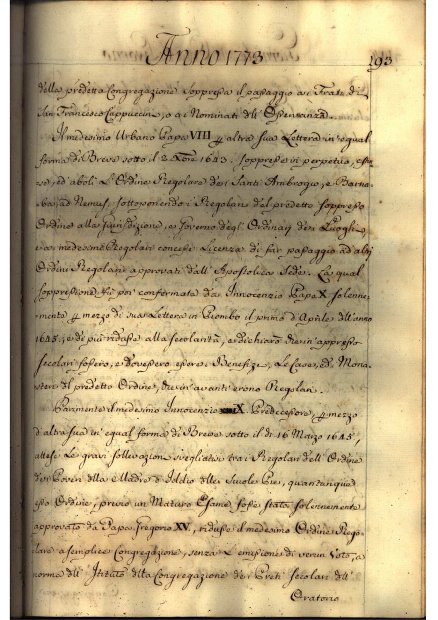 Anno 1773
293
della predetta Congregazione Soppressa il passaggio ai Frati di
San Francesco Cappuccini, o ai Nominati dell' Osservanza.
Il medesimo Urbano Papa VIII altra sua Lettera in egual
forma di Breve sotto il 2 Xbre 1643. soppresse in perpetuo,
ed abolì L'Ordine Regolare dei Santi Ambrogio, e Barna-
ba, ad Nemus, sottoponendo i Regolari del predetto soppresso
Ordine alla Giurisdizione, e Governo degl' Ordinarj dei Luoghi,
e ai medesimi Regolari concesse Licenza di far passaggio ad altri
Ordini Regolari approvati dall' Apostolica Sede. La qual
soppressione fù poi confermata da Innocenzio Papa X. solenne-
mente mezzo di sua Lettera in Piombo il primo d'Aprile dell' anno
1645., e di più ridusse alla secolarità, e dichiarò che in appresso
secolari fossero, e dovessero essere i Benefizj, Le Case, ed i Mona-
steri del predetto Ordine, che in avanti erono Regolari.
Parimente il medesimo Innocenzio X. Predecessore, mezzo
d'altra sua in egual forma di Breve sotto il di 16 Marzo 1645,
attese Le gravi sollevazioni svegliatesi tra i Regolari dell' Ordine
dei Poveri della Madre di Iddio delle Scuole Pie, quantunque
esso Ordine, previo un Maturo Esame fosse stato solennemente
approvato da Papa Gregorio XV, ridusse il medesimo Ordine Rego-
lare a semplice Congregazione, senza L'emissione di verun Voto, a
norma dell' Istituto della Congregazione dei Preti secolari dell'
Oratorio